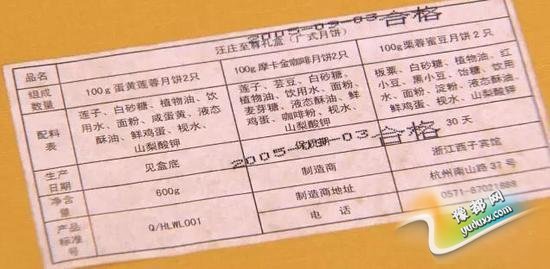 2005-09-03 合格
汪庄至尊礼盒（广式月饼）
品名
组成数量 100g蛋黄莲蓉月饼2只 100g摩卡金咖啡月饼2只 100g栗蓉蜜豆月饼2只
配料表
莲子、白砂糖、植物油、饮用水、面粉、咸蛋黄、液态酥油、鲜鸡蛋、枧水、山梨酸钾
莲子、芸豆、白砂糖、植物油、饮用水、面粉、麦芽糖、液态酥油、鲜鸡蛋、咖啡粉、枧水、山梨酸钾
板栗、白砂糖、植物油、红小豆、黑小豆、饴糖、饮用水、面粉、淀粉、液态酥油、鲜鸡蛋、枧水、山梨酸钾
2005-09-03 合格
生产日期 见盒底 保质期 30天
净含量 600g 制造商 浙江西子宾馆
制造商地址 杭州南山路37号
产品标准号 Q/HLWL001 电话 0571-87021888
豫都网
yuduxx.com